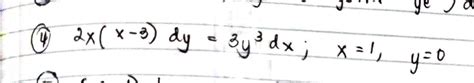 ④ 2x(x-3) dy = 3y³dx ; x=1, y=0